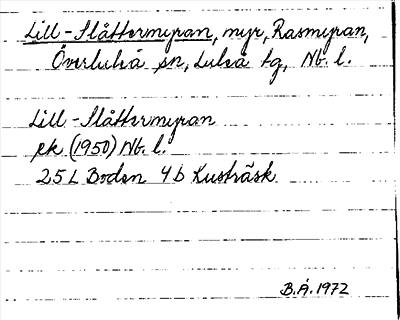 Lill-Slåttermyran, myr, Rasmyran,
Överluleå sn, Luleå tg, Nb. l.
Lill-Slåttermyran
ek (1950) Nb. l.
25L Boden 4b Kusträsk
B.Å. 1972